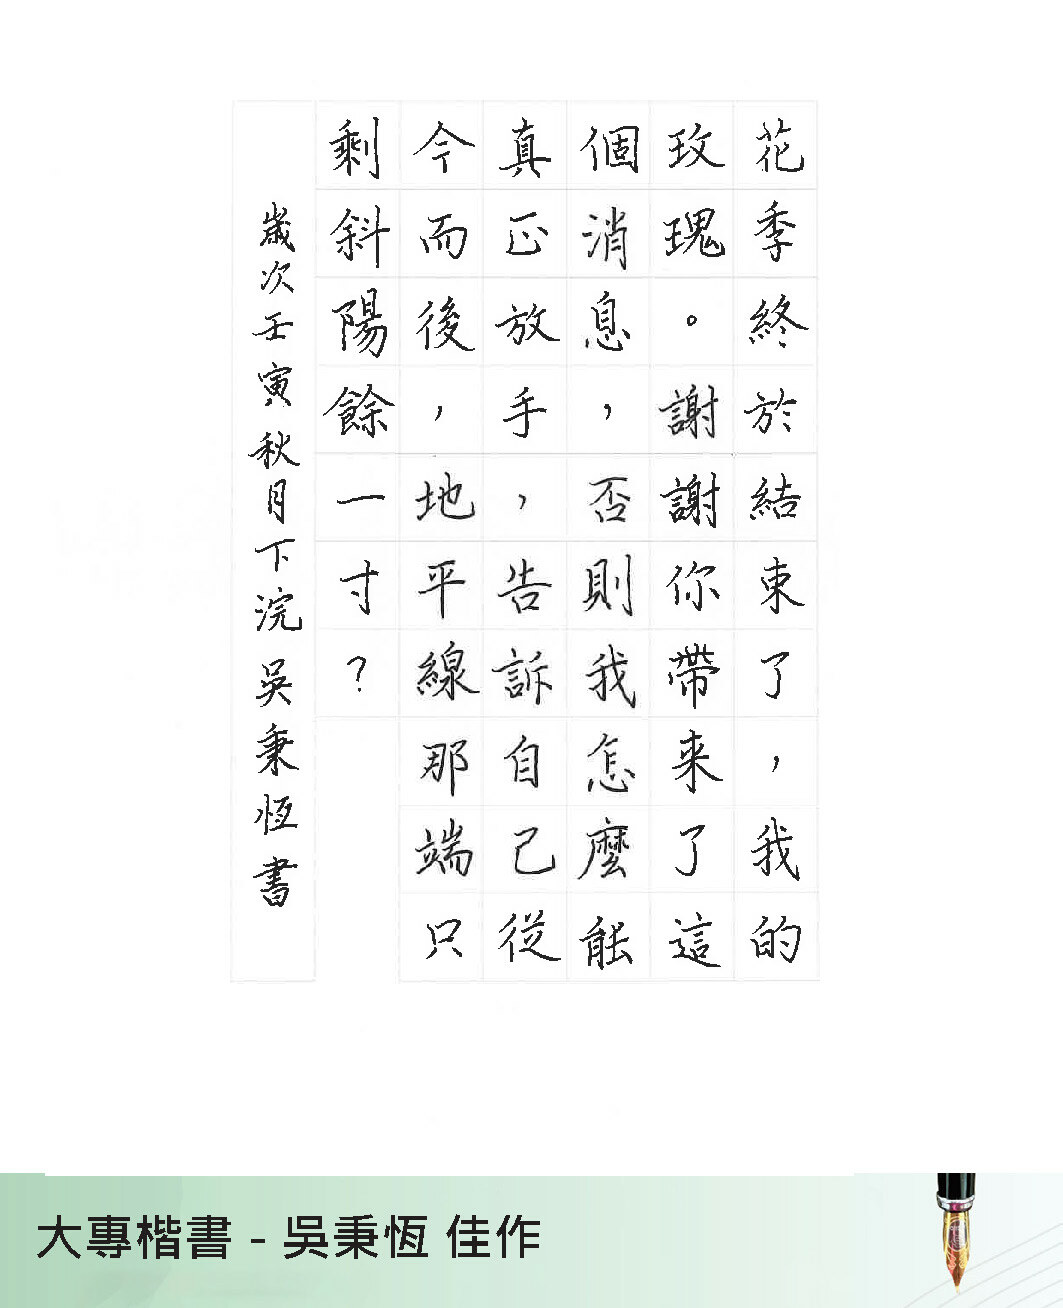 花季終於結束了，我的
玫瑰。謝謝你帶来了這
個消息，否則我怎麼能
真正放手，告訴自己從
今而後，地平線那端只
剩斜陽餘一寸？
歲次壬寅秋月下浣吳秉恆書
大專楷書 - 吳秉恆 佳作